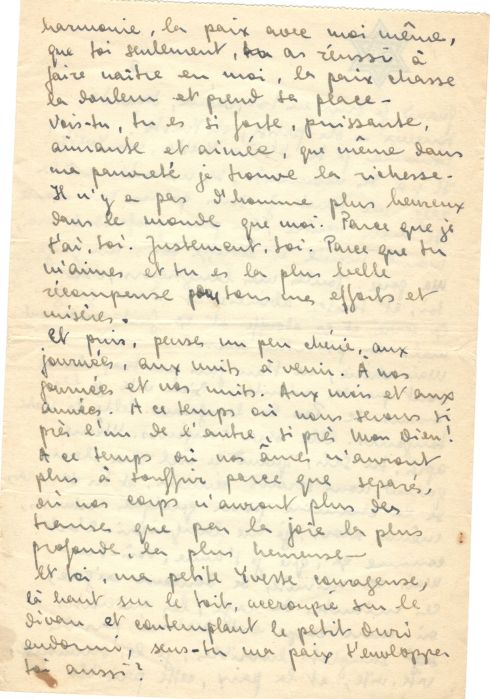 harmonie, la paix avec moi même,
que toi seulement, as réussi à
faire naître en moi, la paix chasse
la douleur et prend sa place -
Vois-tu, tu es si forte, puissante,
aimante et aimée, que même dans
ma pauvreté je trouve la richesse -
Il n'y a pas d'homme plus heureux
dans le monde que moi. Parce que je
t'ai, toi. Justement, toi. Parce que tu
m'aimes et tu es la plus belle
récompense pour tous mes efforts et
misères.
Et puis, penses un peu chérie, aux
journées, aux nuits à venir. À nos
journées et nos nuits. Aux mois et aux
années. A ce temps où nous serons si
près l'un de l'autre, si près mon Dieu!
A ce temps où nos âmes n'auront
plus à souffrir parce que separés,
où nos corps n'auront plus des
transes que par la joie la plus
profonde, la plus heureuse -
Et toi, ma petite Yvette courageuse,
là haut sur le toit, accroupie sur le
divan et contemplant le petit
endormi, sens-tu ma paix t'envelopper
toi aussi?